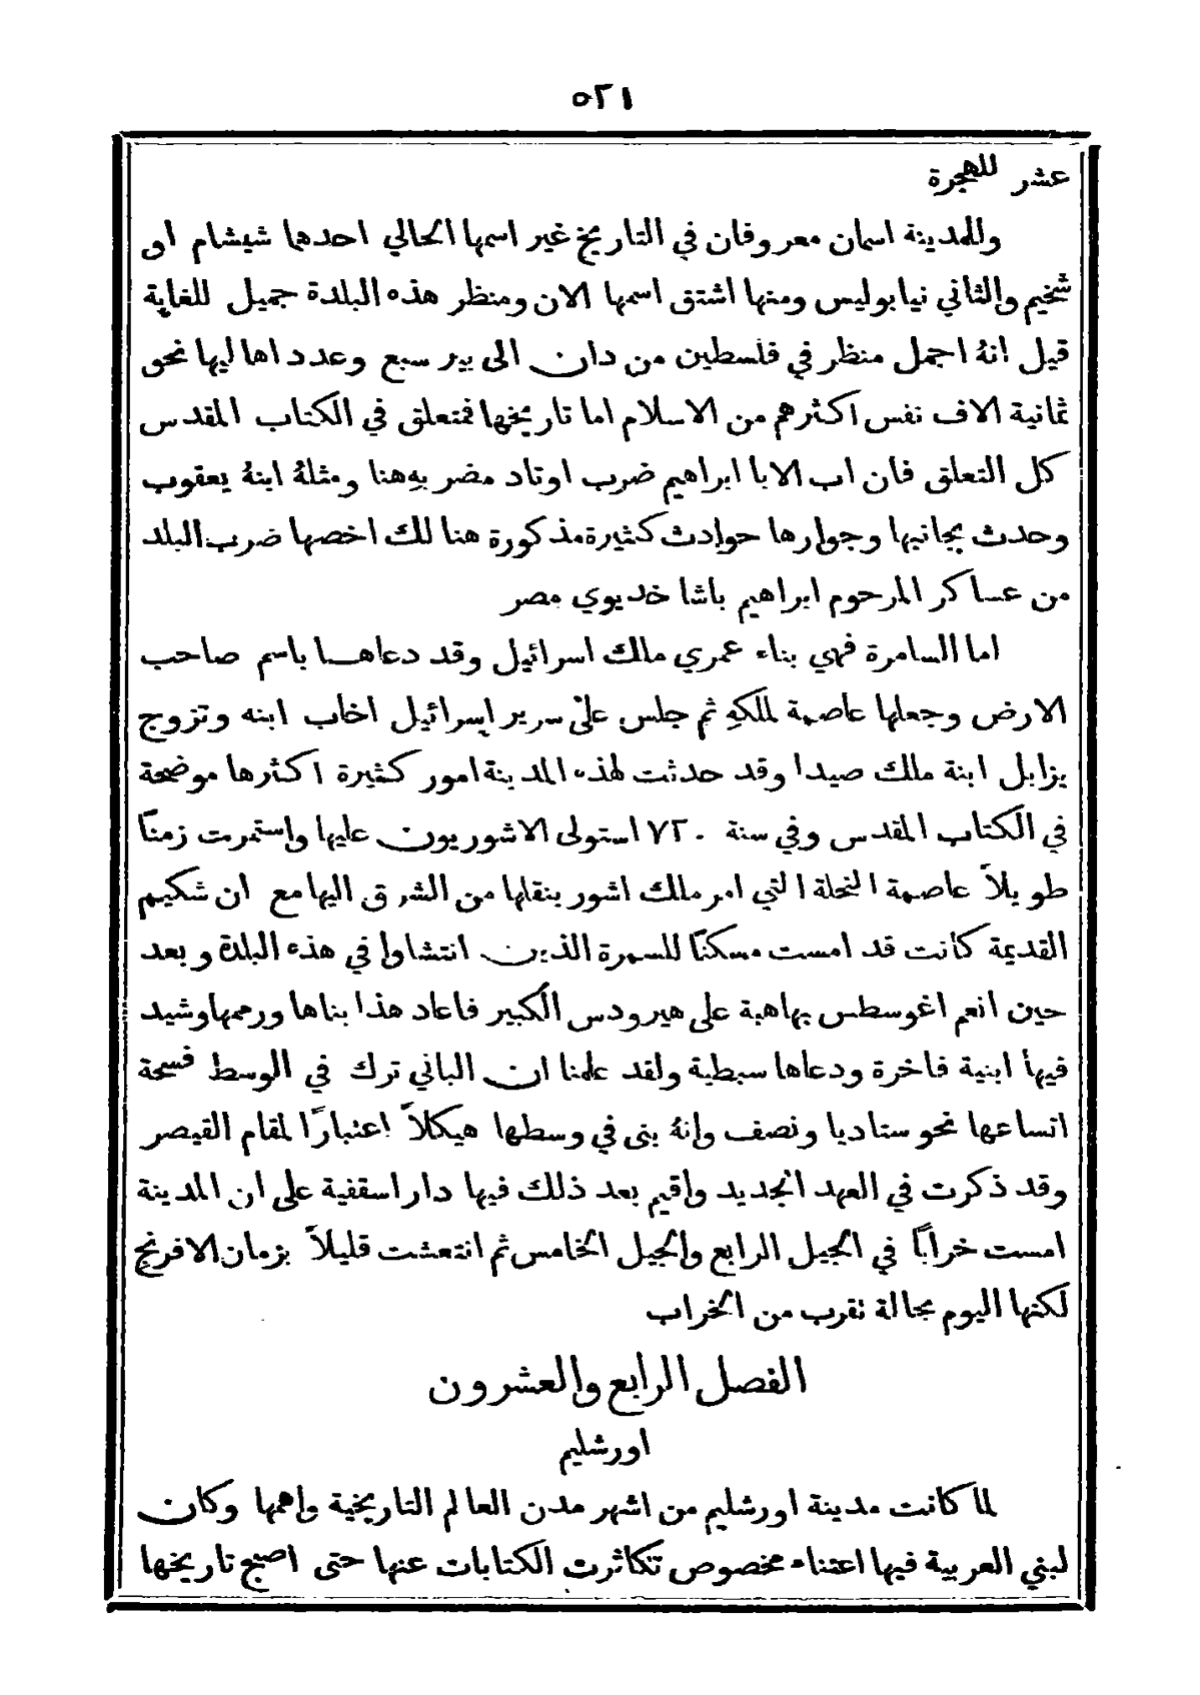 ٥٢١
عشر للهجرة
وللمدينة اسمان معروفان في التاريخ غير اسمها الحالي احدهما شيشام او
شخيم والثاني نيابوليس ومنها اشتق اسمها الان ومنظر هذه البلدة جميل للغاية
قيل انهُ اجمل منظر في فلسطين من دان الى بير سبع وعدد اهاليها نحو
ثمانية الاف نفس اكثرهم من الاسلام اما تاريخها فمتعلق في الكتاب المقدس
كل التعلق فان اب الابا ابراهيم ضرب اوتاد مضربهِ هنا ومثلهُ ابنهُ يعقوب
وحدث بجانبها وجوارها حوادث كثيرة مذكورة هنالك اخصها ضرب البلد
من عساكر المرحوم ابراهيم باشا خديوي مصر
اما السامرة فهي بناء عمري ملك اسرائيل وقد دعاها باسم صاحب
الارض وجعلها عاصمة لملكهِ ثم جلس على سرير اسرائيل اخاب ابنه وتزوج
يزابل ابنة ملك صيدا وقد حدثت لهذه المدينة امور كثيرة اكثرها موضحة
في الكتاب المقدس وفي سنة ٧٢٠ استولى الاشوريون عليها واستمرت زمنًا
طويلاً عاصمة النحلة التي امر ملك اشور بنقلها من الشرق اليها مع ان شكيم
القديمة كانت قد امست مسكنًا للسمرة الذين انتشاوا في هذه البلدة وبعد
حين انعم اغوسطس بهاهبة على هيرودس الكبير فاعاد هذا بناها ورممها وشيد
فيها ابنية فاخرة ودعاها سبطية ولقد علمنا ان الباني ترك في الوسط فسحة
اتساعها نحو ستاديا ونصف وانهُ بنى في وسطها هيكلاً اعتبارًا لمقام القيصر
وقد ذكرت في العهد الجديد واقيم بعد ذلك فيها دار اسقفية على ان المدينة
امست خرابًا في الجيل الرابع والجيل الخامس ثم انتعشت قليلاً بزمان الافرنج
لكنها اليوم بحالة تقرب من الخراب
الفصل الرابع والعشرون
اورشليم
لما كانت مدينة اورشليم من اشهر مدن العالم التاريخية واهمها وكان
لبني العربية فيها اعتناء مخصوص تكاثرت الكتابات عنها حتى اصبح تاريخها